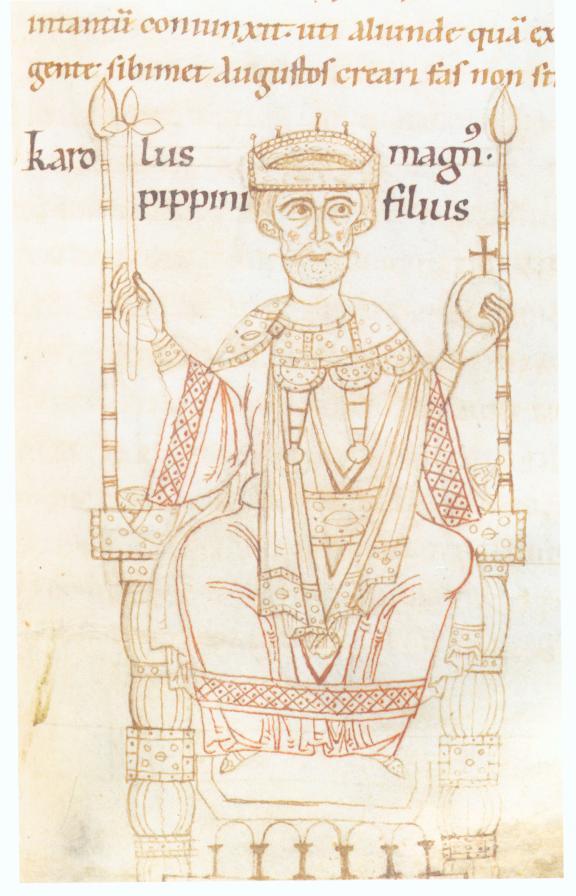 intantū coniunxit. uti aliunde quā ex
gente sibimet augustos creari fas non
karolus magn⁹.
pippini filius